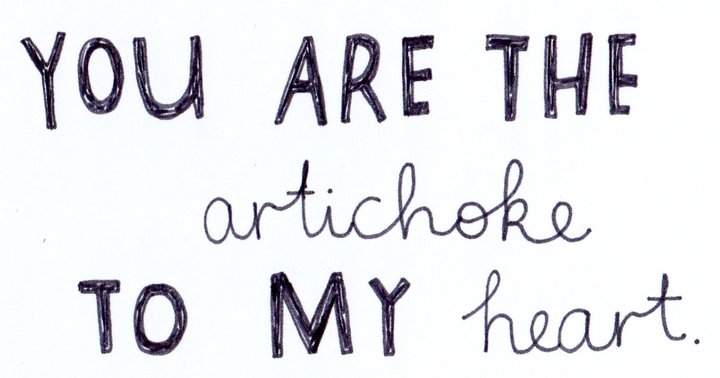 YOU ARE THE
artichoke
TO MY heart.